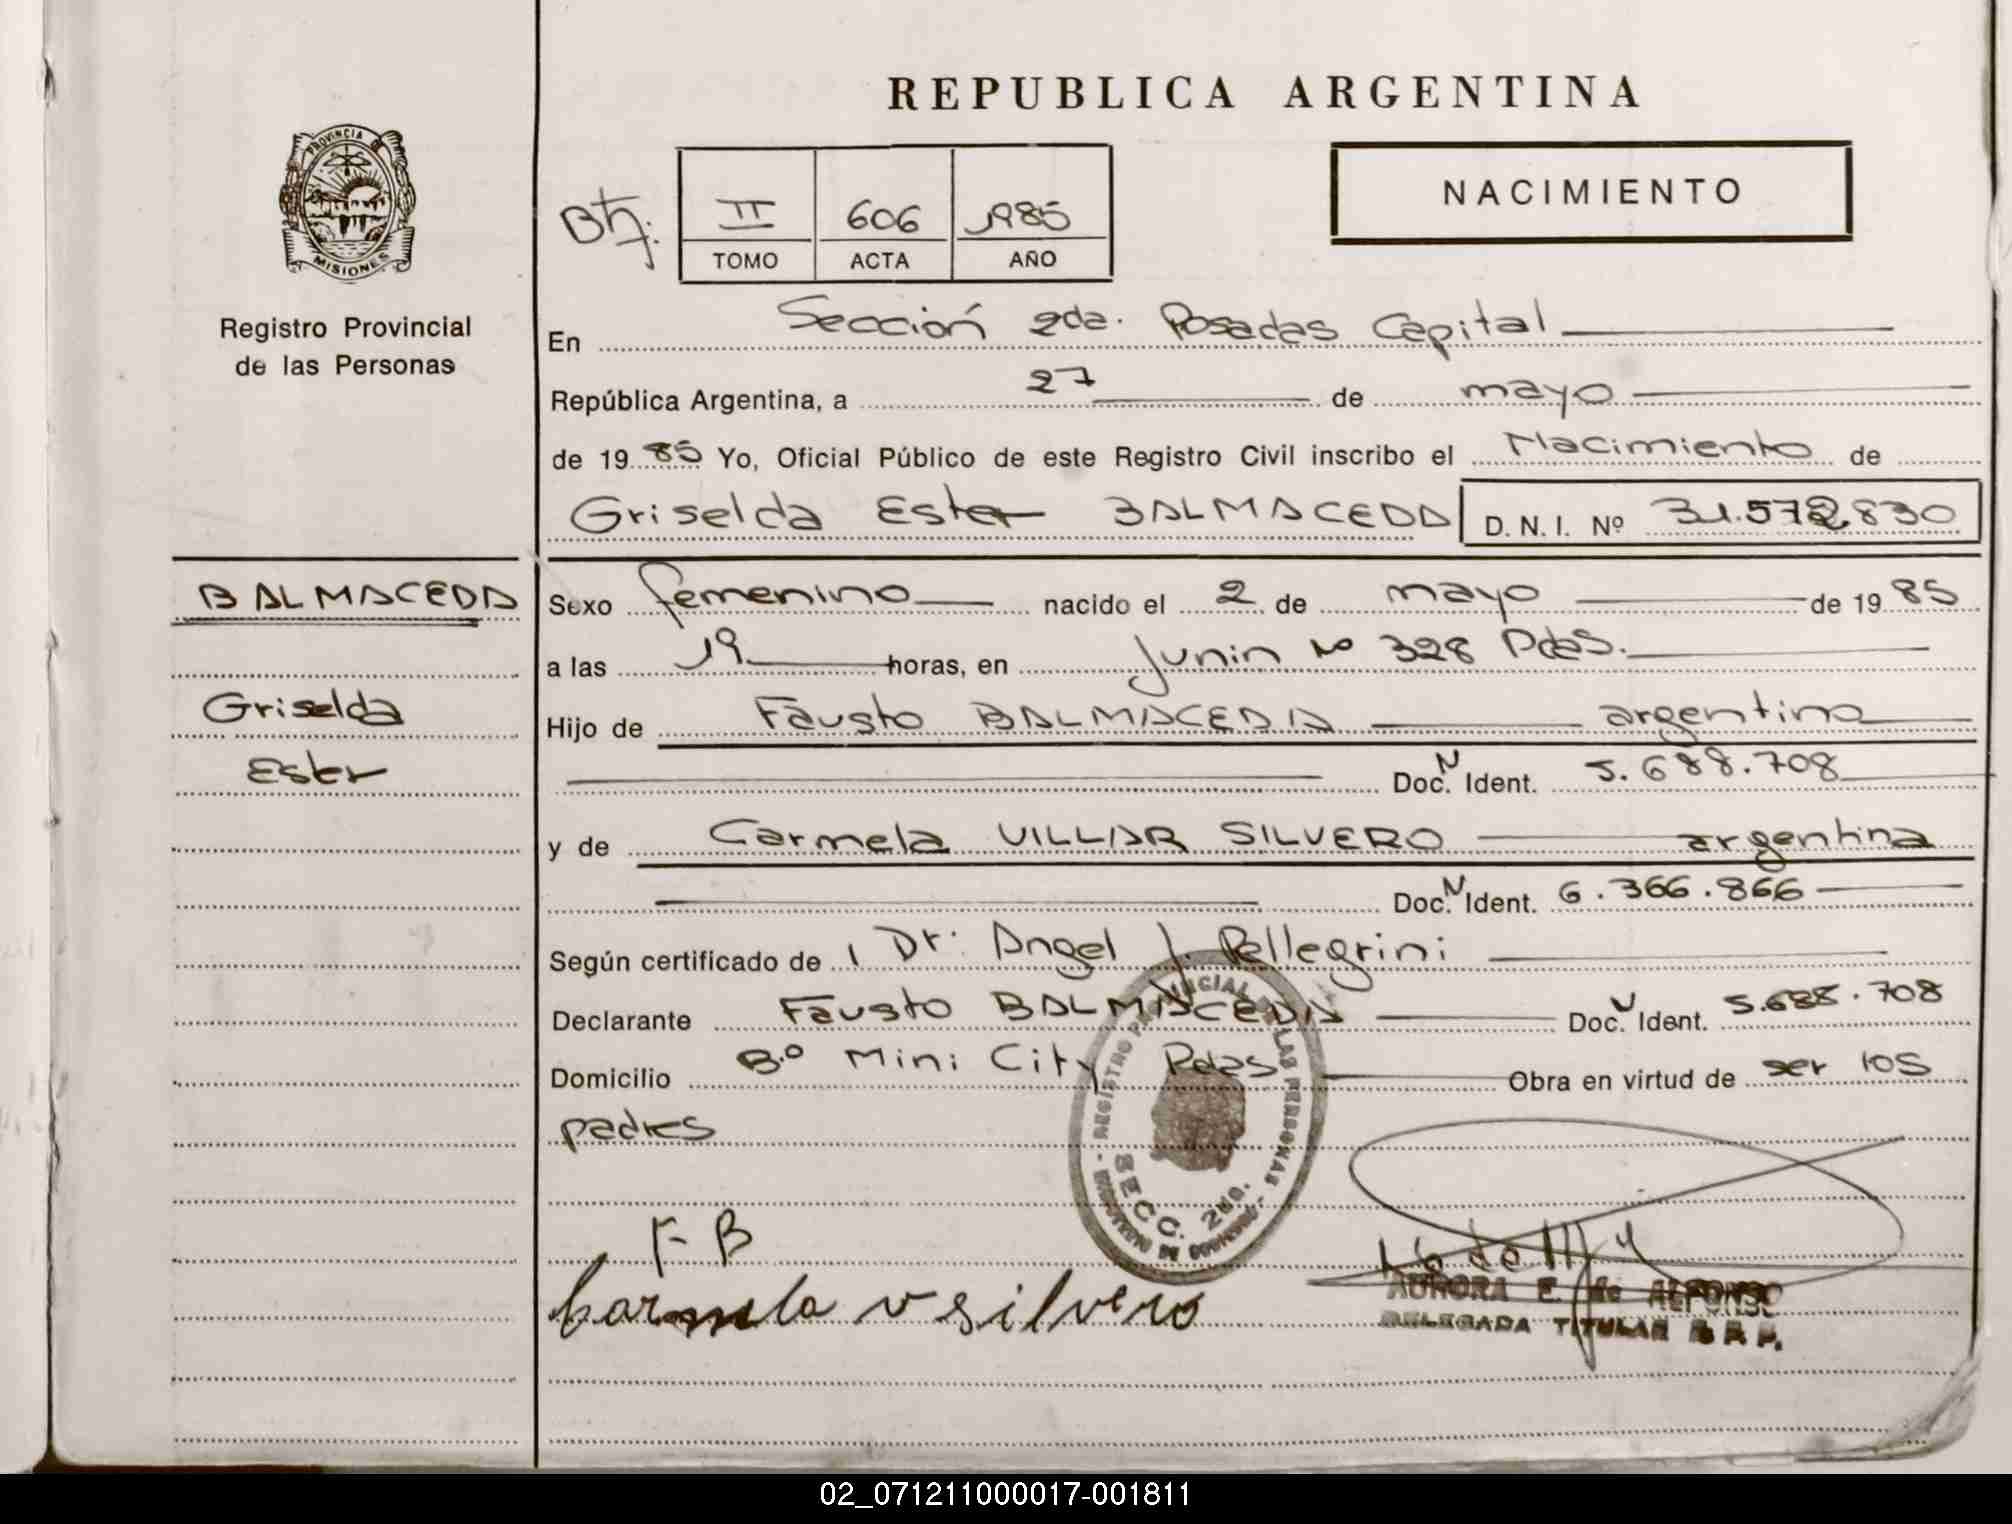 REPUBLICA ARGENTINA
PROVINCIA DE
MISIONES
Registro Provincial
de las Personas
II 606 1985
TOMO ACTA AÑO
NACIMIENTO
En Sección 2da. Posadas Capital
República Argentina, a 27 de mayo
de 1985 Yo, Oficial Público de este Registro Civil inscribo el Nacimiento de
Griselda Ester BALMACEDA D. N. I. Nº 31.572.830
BALMACEDA
Griselda
Ester
Sexo femenino nacido el 2 de mayo de 1985
a las 19 horas, en Junin Nº 328 Pdas.
Hijo de Fausto BALMACEDA argentino
Doc. N Ident. 5.688.708
y de Carmela VILLAR SILVERO argentina
Doc. N Ident. 6.366.866
Según certificado de Dr. Angel J. Pellegrini
Declarante Fausto BALMACEDA Doc. N Ident. 5.688.708
Domicilio Bº Mini City Pdas Obra en virtud de ser los
padres
REGISTRO PROVINCIAL DE LAS PERSONAS
SECC. 2da.
F B
Carmela v silvero
AURORA E. de ALFONSO
DELEGADA TITULAR R. P. P.
02_071211000017-001811